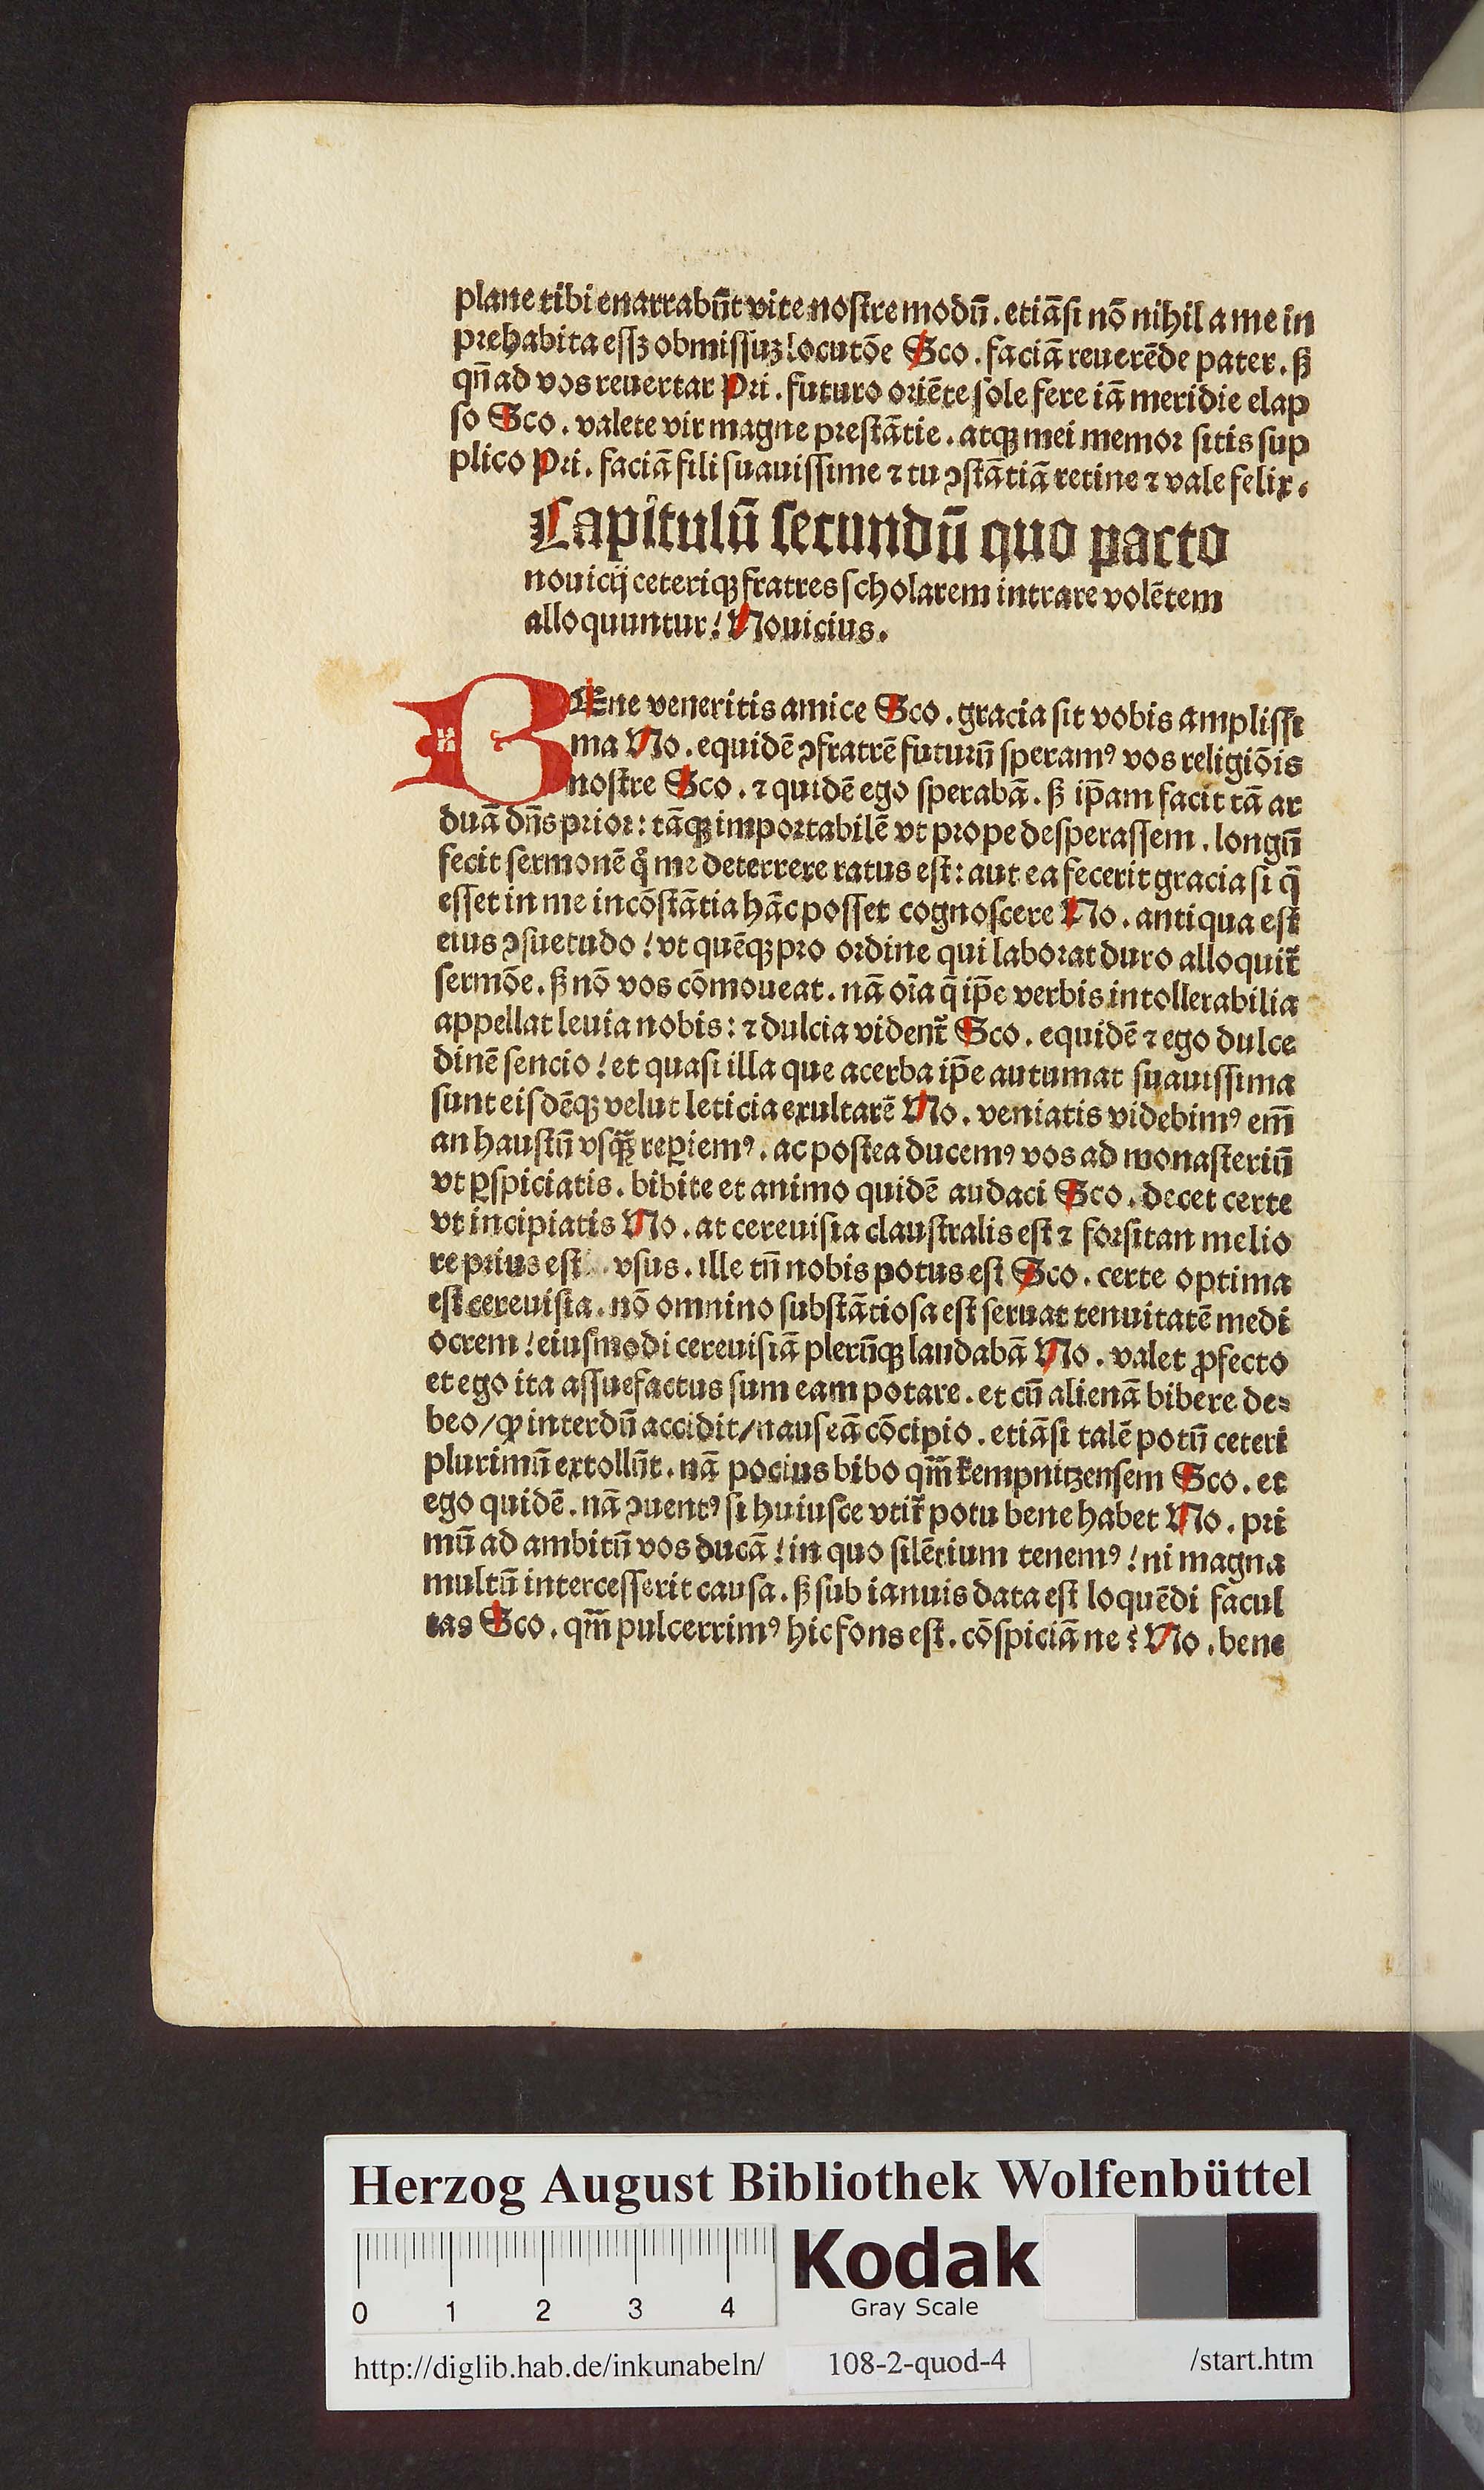 plane tibi enarrabūt vite nostre modū. etiāsi nō nihil a me in
prehabita essꝫ obmissuꝫ locutōe Sco. faciā reuerēde pater. sꝫ
qn̄ ad vos reuertar Pri. futuro oriēte sole fere iā meridie elap
so Sco. valete vir magne prestātie. atqꝫ mei memor sitis sup
plico Pri. faciā fili suauissime ⁊ tu ꝯstātiā retine ⁊ vale felix.
Capitulū secundū quo pacto
nouicij ceteriqꝫ fratres scholarem intrare volētem
alloquuntur: Nouicius.
BEne veneritis amice Sco. gracia sit vobis amplissi
ma No. equidē ꝯfratrē futurū speramꝰ vos religiōis
nostre Sco. ⁊ quidē ego sperabā. sꝫ ip̄am facit tā ar
duā dn̄s prior: tāqꝫ importabilē vt prope desperassem. longū
fecit sermonē qͦ me deterrere ratus est: aut ea fecerit gracia si q̄
esset in me incōstātia hāc posset cognoscere No. antiqua est
eius ꝯsuetudo: vt quēqꝫ pro ordine qui laborat duro alloquit᷑
sermōe. sꝫ nō vos cōmoueat. nā oīa q̄ ip̄e verbis intollerabilia
appellat leuia nobis: ⁊ dulcia vident᷑ Sco. equidē ⁊ ego dulce
dinē sencio: et quasi illa que acerba ip̄e autumat suauissima
sunt eisdēqꝫ velut leticia exultarē No. veniatis videbimꝰ em̄
an haustū vsq̄ꝫ reꝑiemꝰ. ac postea ducemꝰ vos ad monasteriū
vt ꝑspiciatis. bibite et animo quidē audaci Sco. decet certe
vt incipiatis No. at cereuisia claustralis est ⁊ forsitan melio
re prius est vsus. ille tn̄ nobis potus est Sco. certe optima
est cereuisia. nō omnino substātiosa est seruat tenuitatē medi
ocrem: eiusmodi cereuisiā plerūqꝫ laudabā No. valet ꝓfecto
et ego ita assuefactus sum eam potare. et cū alienā bibere de-
beo/ꝙ interdū accidit/nauseā cōcipio. etiāsi talē potū ceteri
plurimū extollūt. nā pocius bibo qm̄ kempnitzensem Sco. et
ego quidē. nā ꝯuentꝰ si huiusce vtit᷑ potu bene habet No. pri
mū ad ambitū vos ducā: in quo silētium tenemꝰ: ni magna
multū intercesserit causa. sꝫ sub ianuis data est loquēdi facul
tas Sco. qm̄ pulcerrimꝰ hic fons est. cōspiciā ne? No. bene
Herzog August Bibliothek Wolfenbüttel
Kodak
Gray Scale
0 1 2 3 4
http://diglib.hab.de/inkunabeln/ 108-2-quod-4 /start.htm